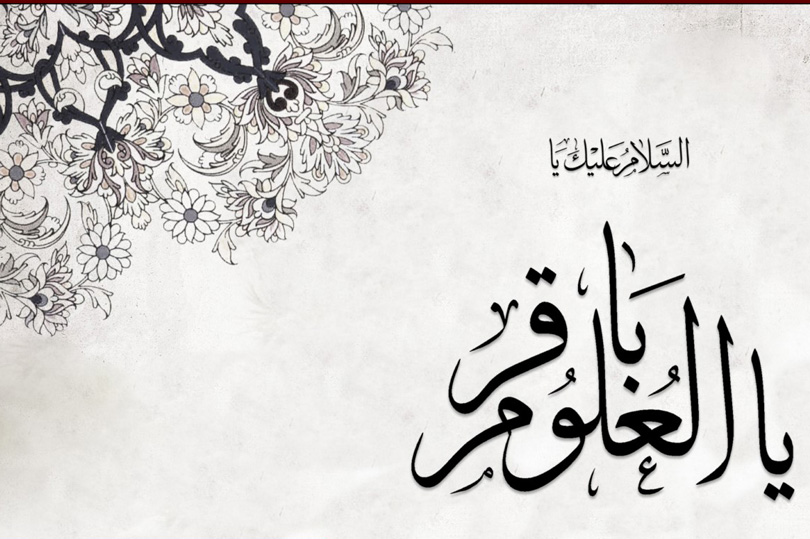 السَّلامُ عَلَيْكَ يَا
يا باقر العُلُوم